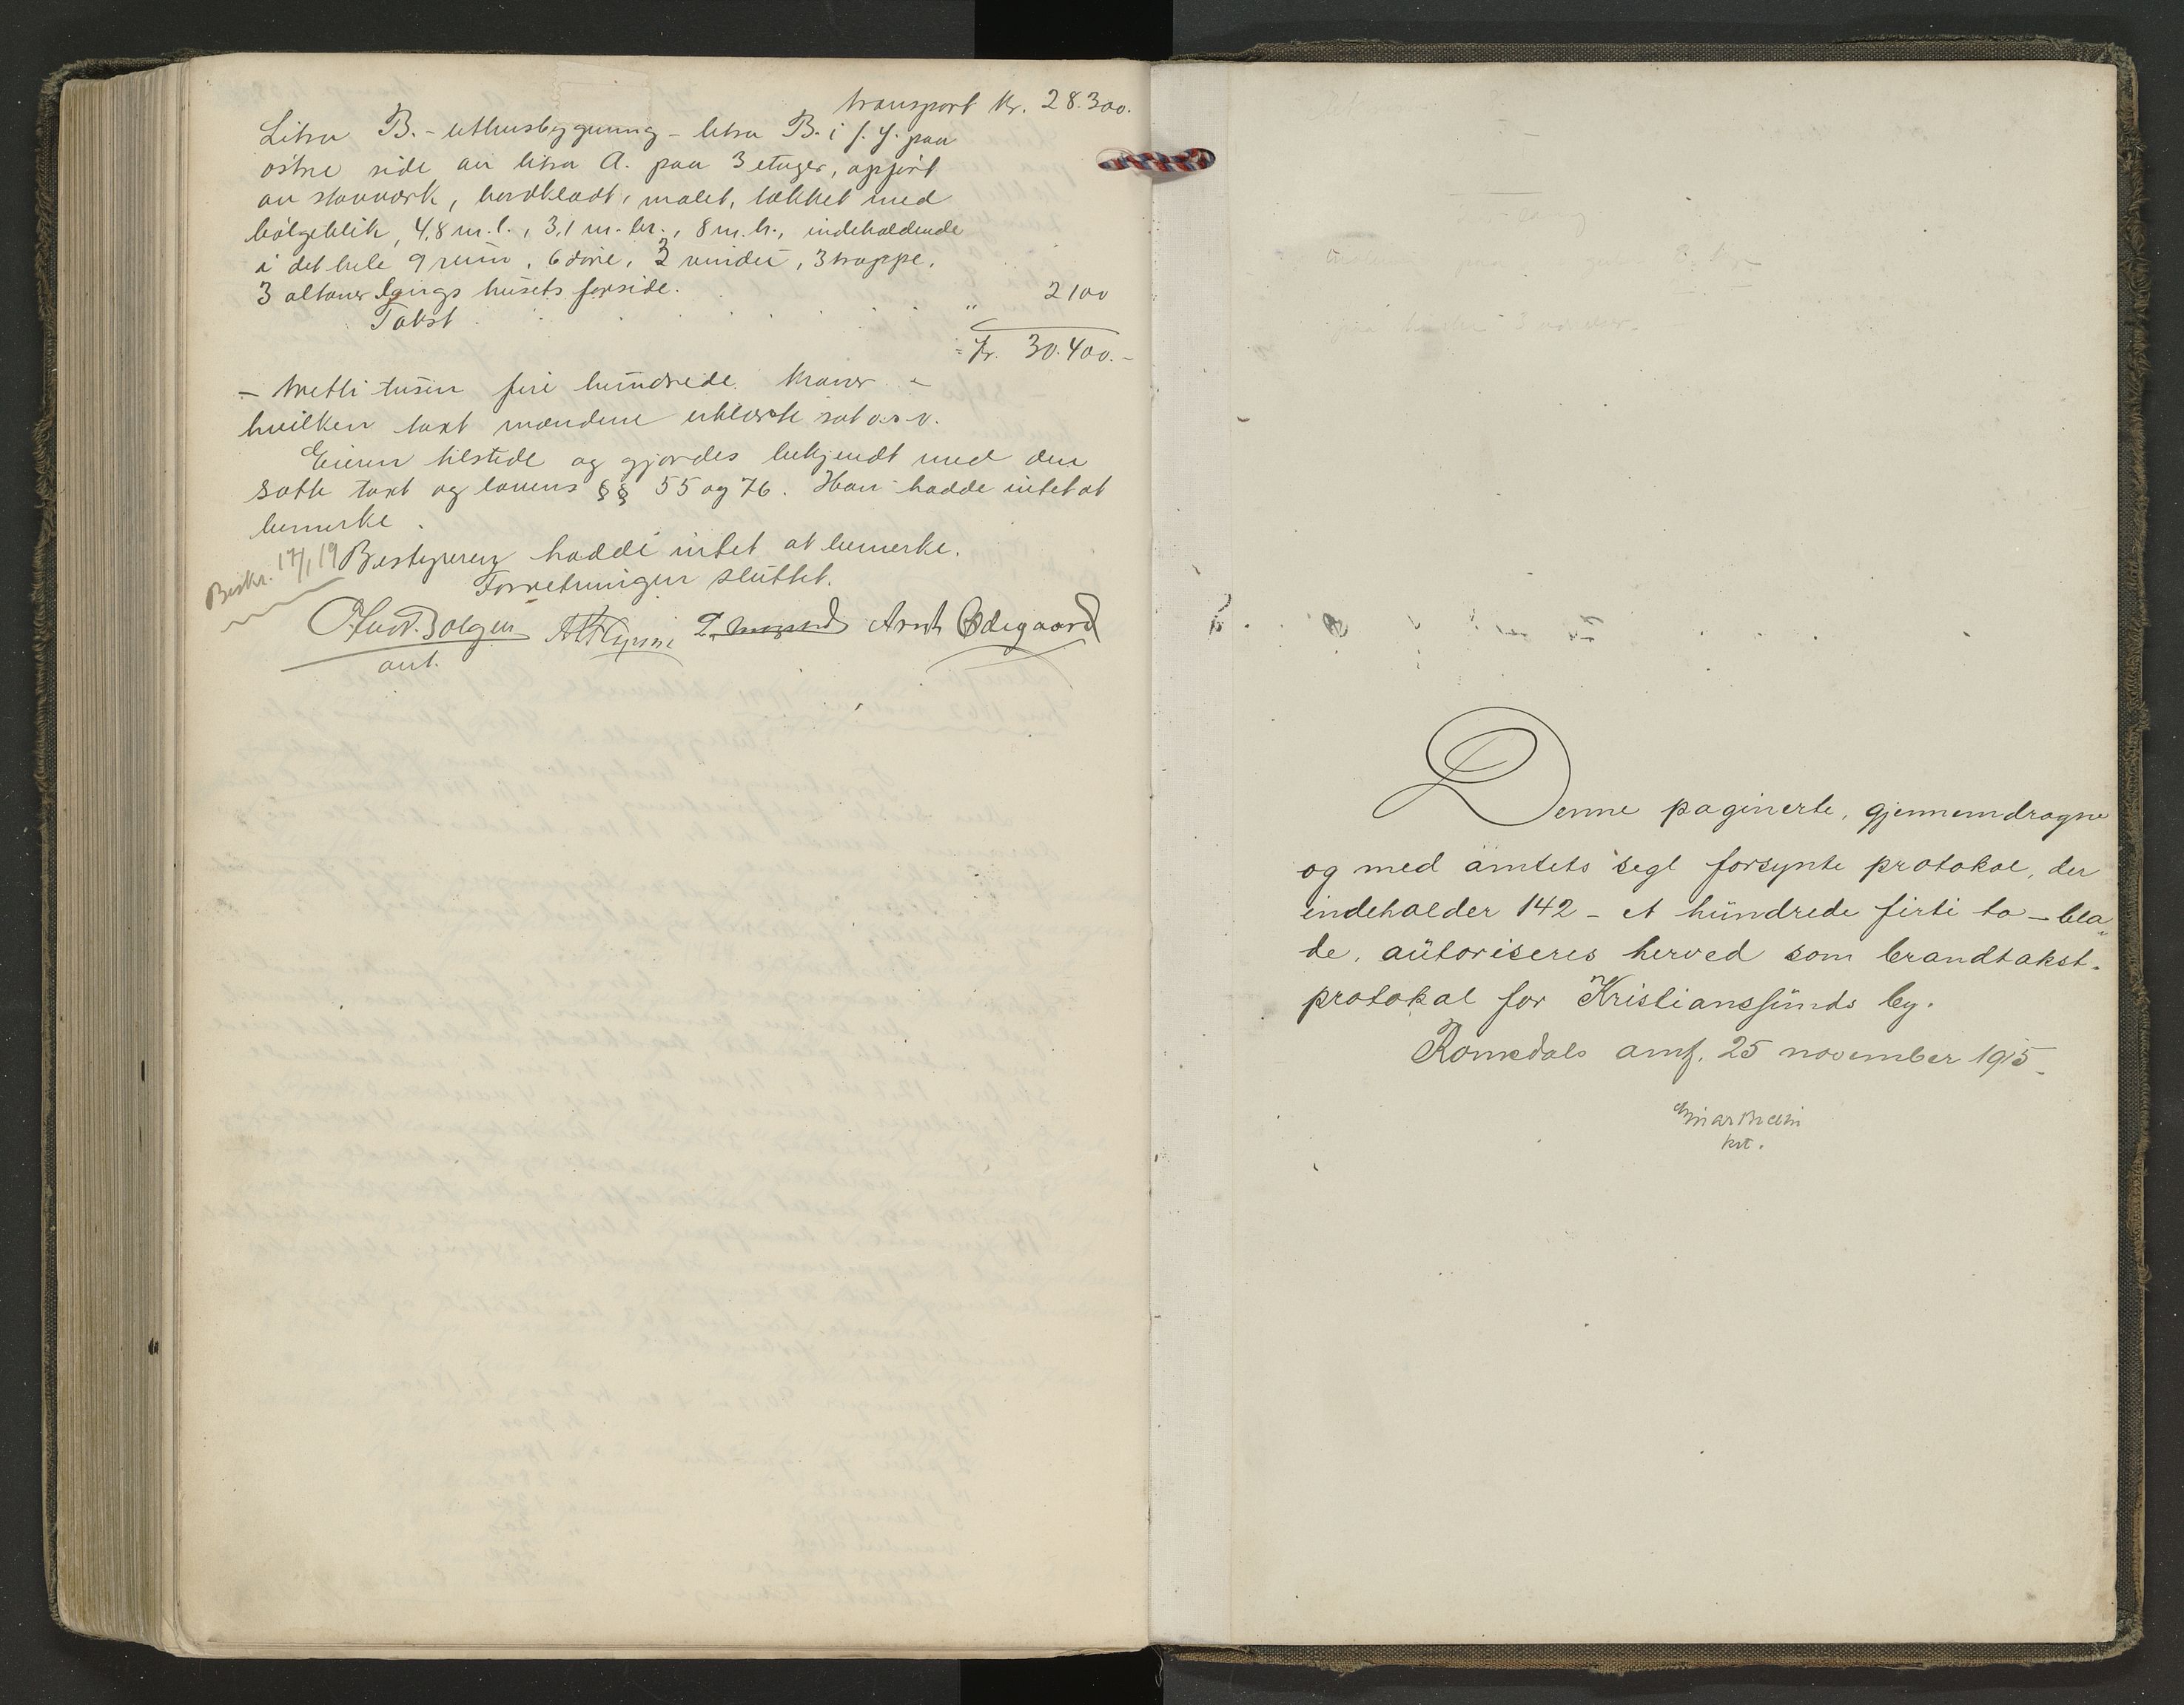 transport Kr. 28.300.
Litra B. - uthusbygning - litra B. i f. f. paa
østre side av litra A. paa 3 etager, opført
av stavverk, bordklædt, malet, tækket med
bølgeblik, 4,8 m. l., 3,1 m. br., 8 m. h., indeholdende
i det hele 9 rum, 6 döre, 3 vinduer, 3 trappe,
3 altaner langs husets forside.
Takst . . . . . . " 2100
= Kr. 30.400.-
- tretti tusen fire hundrede kroner -
hvilken taxt mændene erklærte sat o. s. v.
Eieren tilstede og gjordes bekjendt med den
satte taxt og lovens §§ 55 og 76. Han hadde intet at
bemerke.
Beskr. 17/1 19 Bestyreren hadde intet at bemerke.
Forretningen sluttet.
Arnt Ødegaard
aut.
Denne paginerte, gjennemdragne
og med amtets segl forsynte protokol, der
indeholder 142 - et hundrede firti to - bla-
de, autoriseres herved som brandtakst-
protokol for Kristianssunds by.
Romsdals amt, 25 november 1915.
kst.